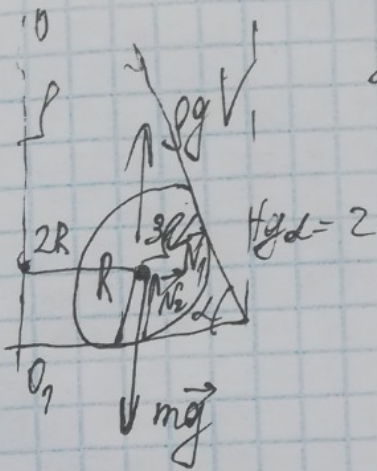 O
ρ
ρgV₁
2R
R
N₁
N₂
tgα = 2
α
O₁
mg⃗